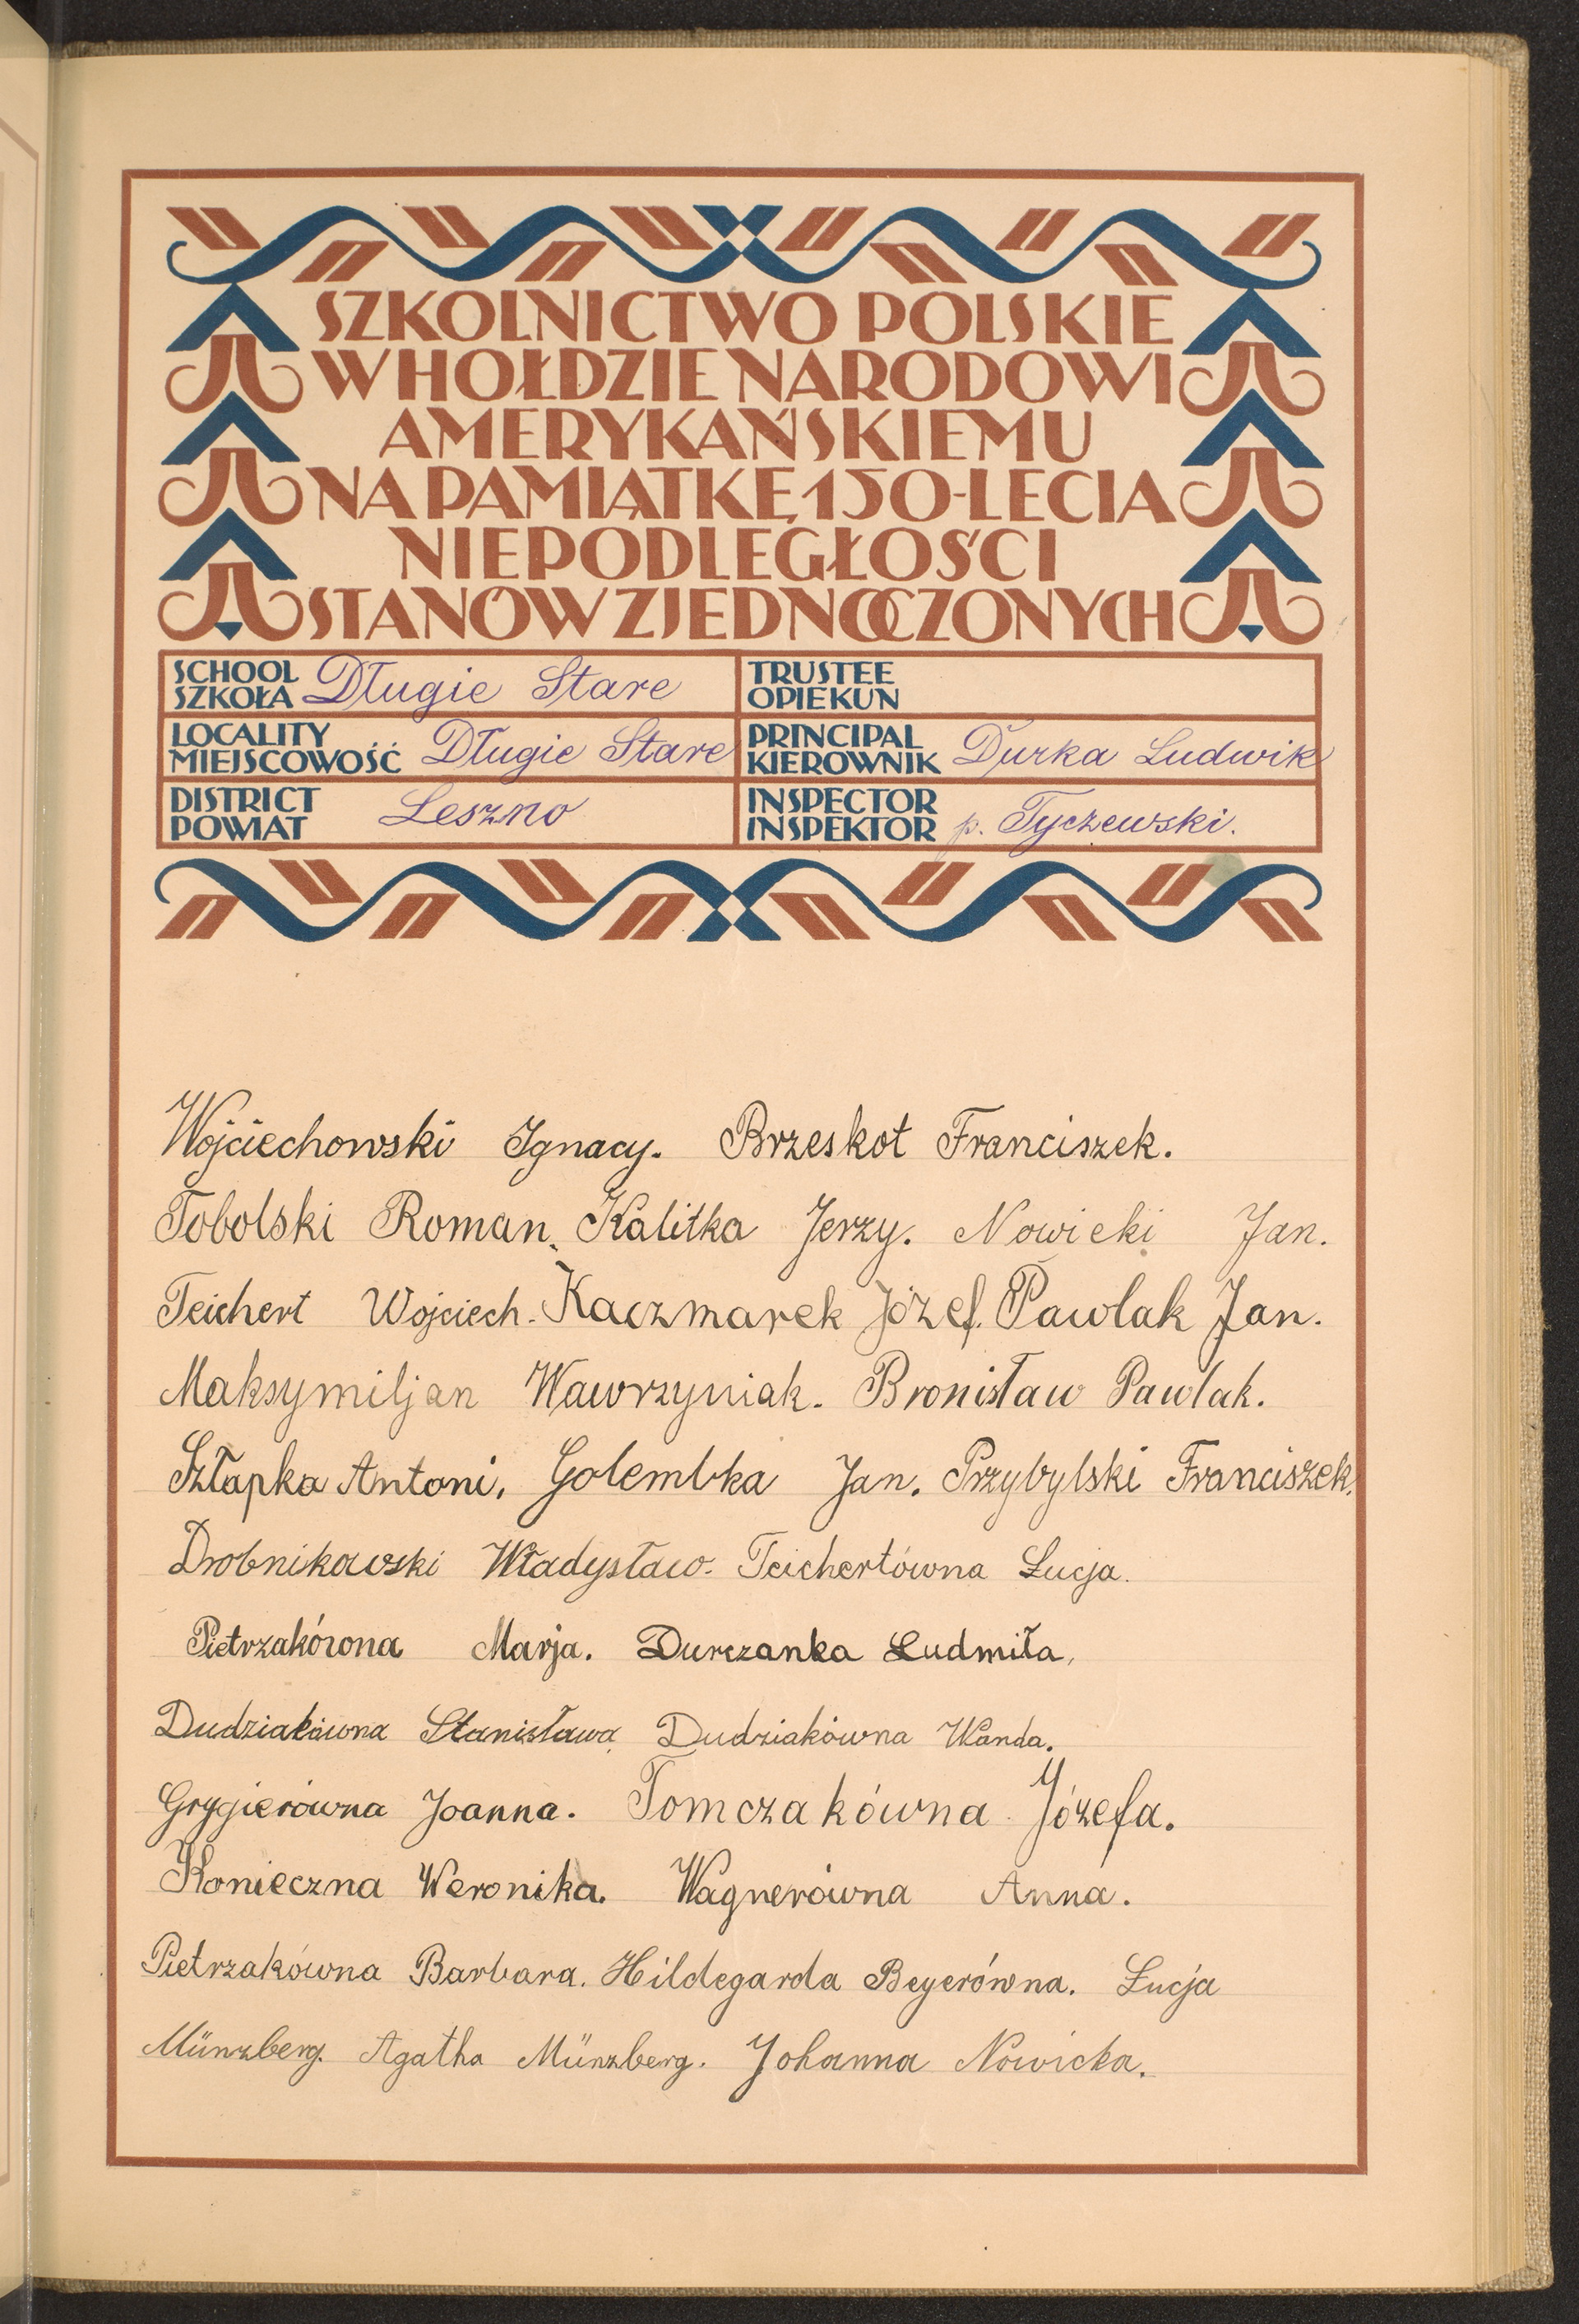 SZKOLNICTWO POLSKIE
W HOŁDZIE NARODOWI
AMERYKAŃSKIEMU
NA PAMIĄTKĘ 150-LECIA
NIEPODLEGŁOŚCI
STANÓW ZJEDNOCZONYCH
SCHOOL
SZKOŁA Długie Stare
TRUSTEE
OPIEKUN
LOCALITY
MIEJSCOWOŚĆ Długie Stare
PRINCIPAL
KIEROWNIK Durka Ludwik
DISTRICT
POWIAT Leszno
INSPECTOR
INSPEKTOR p. Tyczewski.
Wojciechowski Ignacy. Brzeskot Franciszek.
Tobolski Roman, Kalitka Jerzy. Nowicki Jan.
Teichert Wojciech. Kaczmarek Józef. Pawlak Jan.
Maksymiljan Wawrzyniak. Bronisław Pawlak.
Szłapka Antoni, Golembka Jan. Przybylski Franciszek.
Drobnikowski Władysław. Teichertówna Łucja.
Pietrzakówna Marja. Durczanka Ludmiła,
Dudziakówna Stanisława, Dudziakówna Wanda.
Grygierówna Joanna. Tomczakówna Józefa.
Konieczna Weronika. Wagnerówna Anna.
Pietrzakówna Barbara. Hildegarda Beyerówna. Łucja
Münzberg. Agatha Münzberg. Johanna Nowicka.